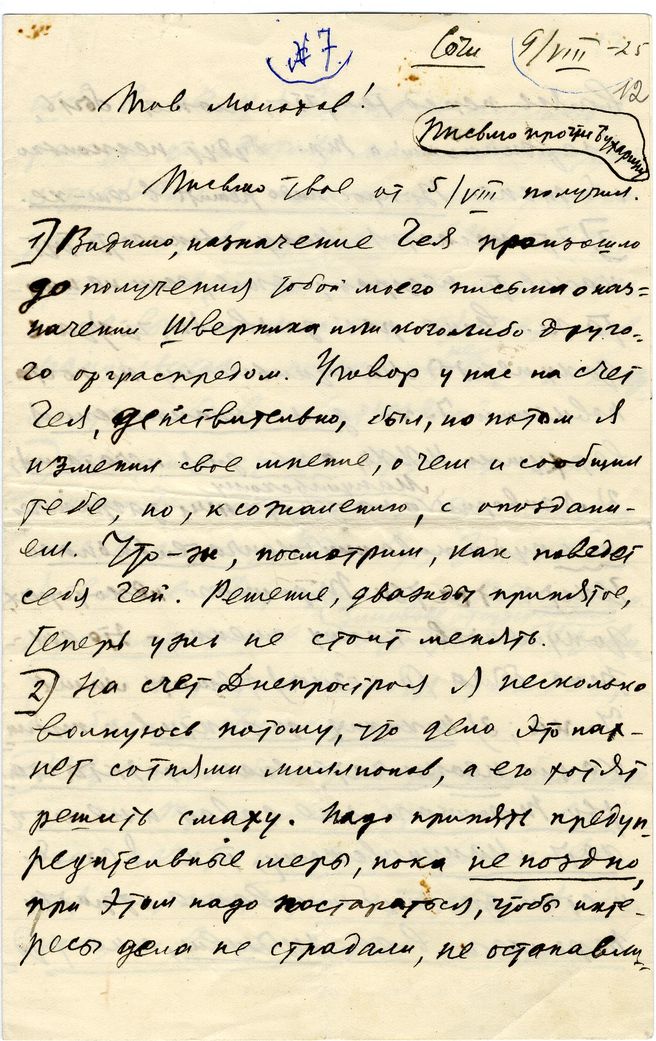 № 7
Сочи 9/VIII – 25
12
Тов Молотов!
Письмо против Бухарина
Письмо твое от 5/VIII получил.
1) Видимо, назначение Гея произошло
до получения тобой моего письма о наз=
начении Шверника или кого либо друго-
го орграспредом. Уговор у нас на счет
Гея, действительно, был, но потом я
изменил свое мнение, о чем и сообщил
тебе, но, к сожалению, с опоздани-
ем. Что-ж, посмотрим, как поведет
себя Гей. Решение, дважды принятое,
теперь уж не стоит менять.
2) На счет Днепростроя я несколько
волнуюсь потому, что дело это пах-
нет сотнями миллионов, а его хотят
решить смаху. Надо принять предуп-
редительные меры, пока не поздно,
при этом надо постараться, чтобы инте-
ресы дела не страдали, не останавли-